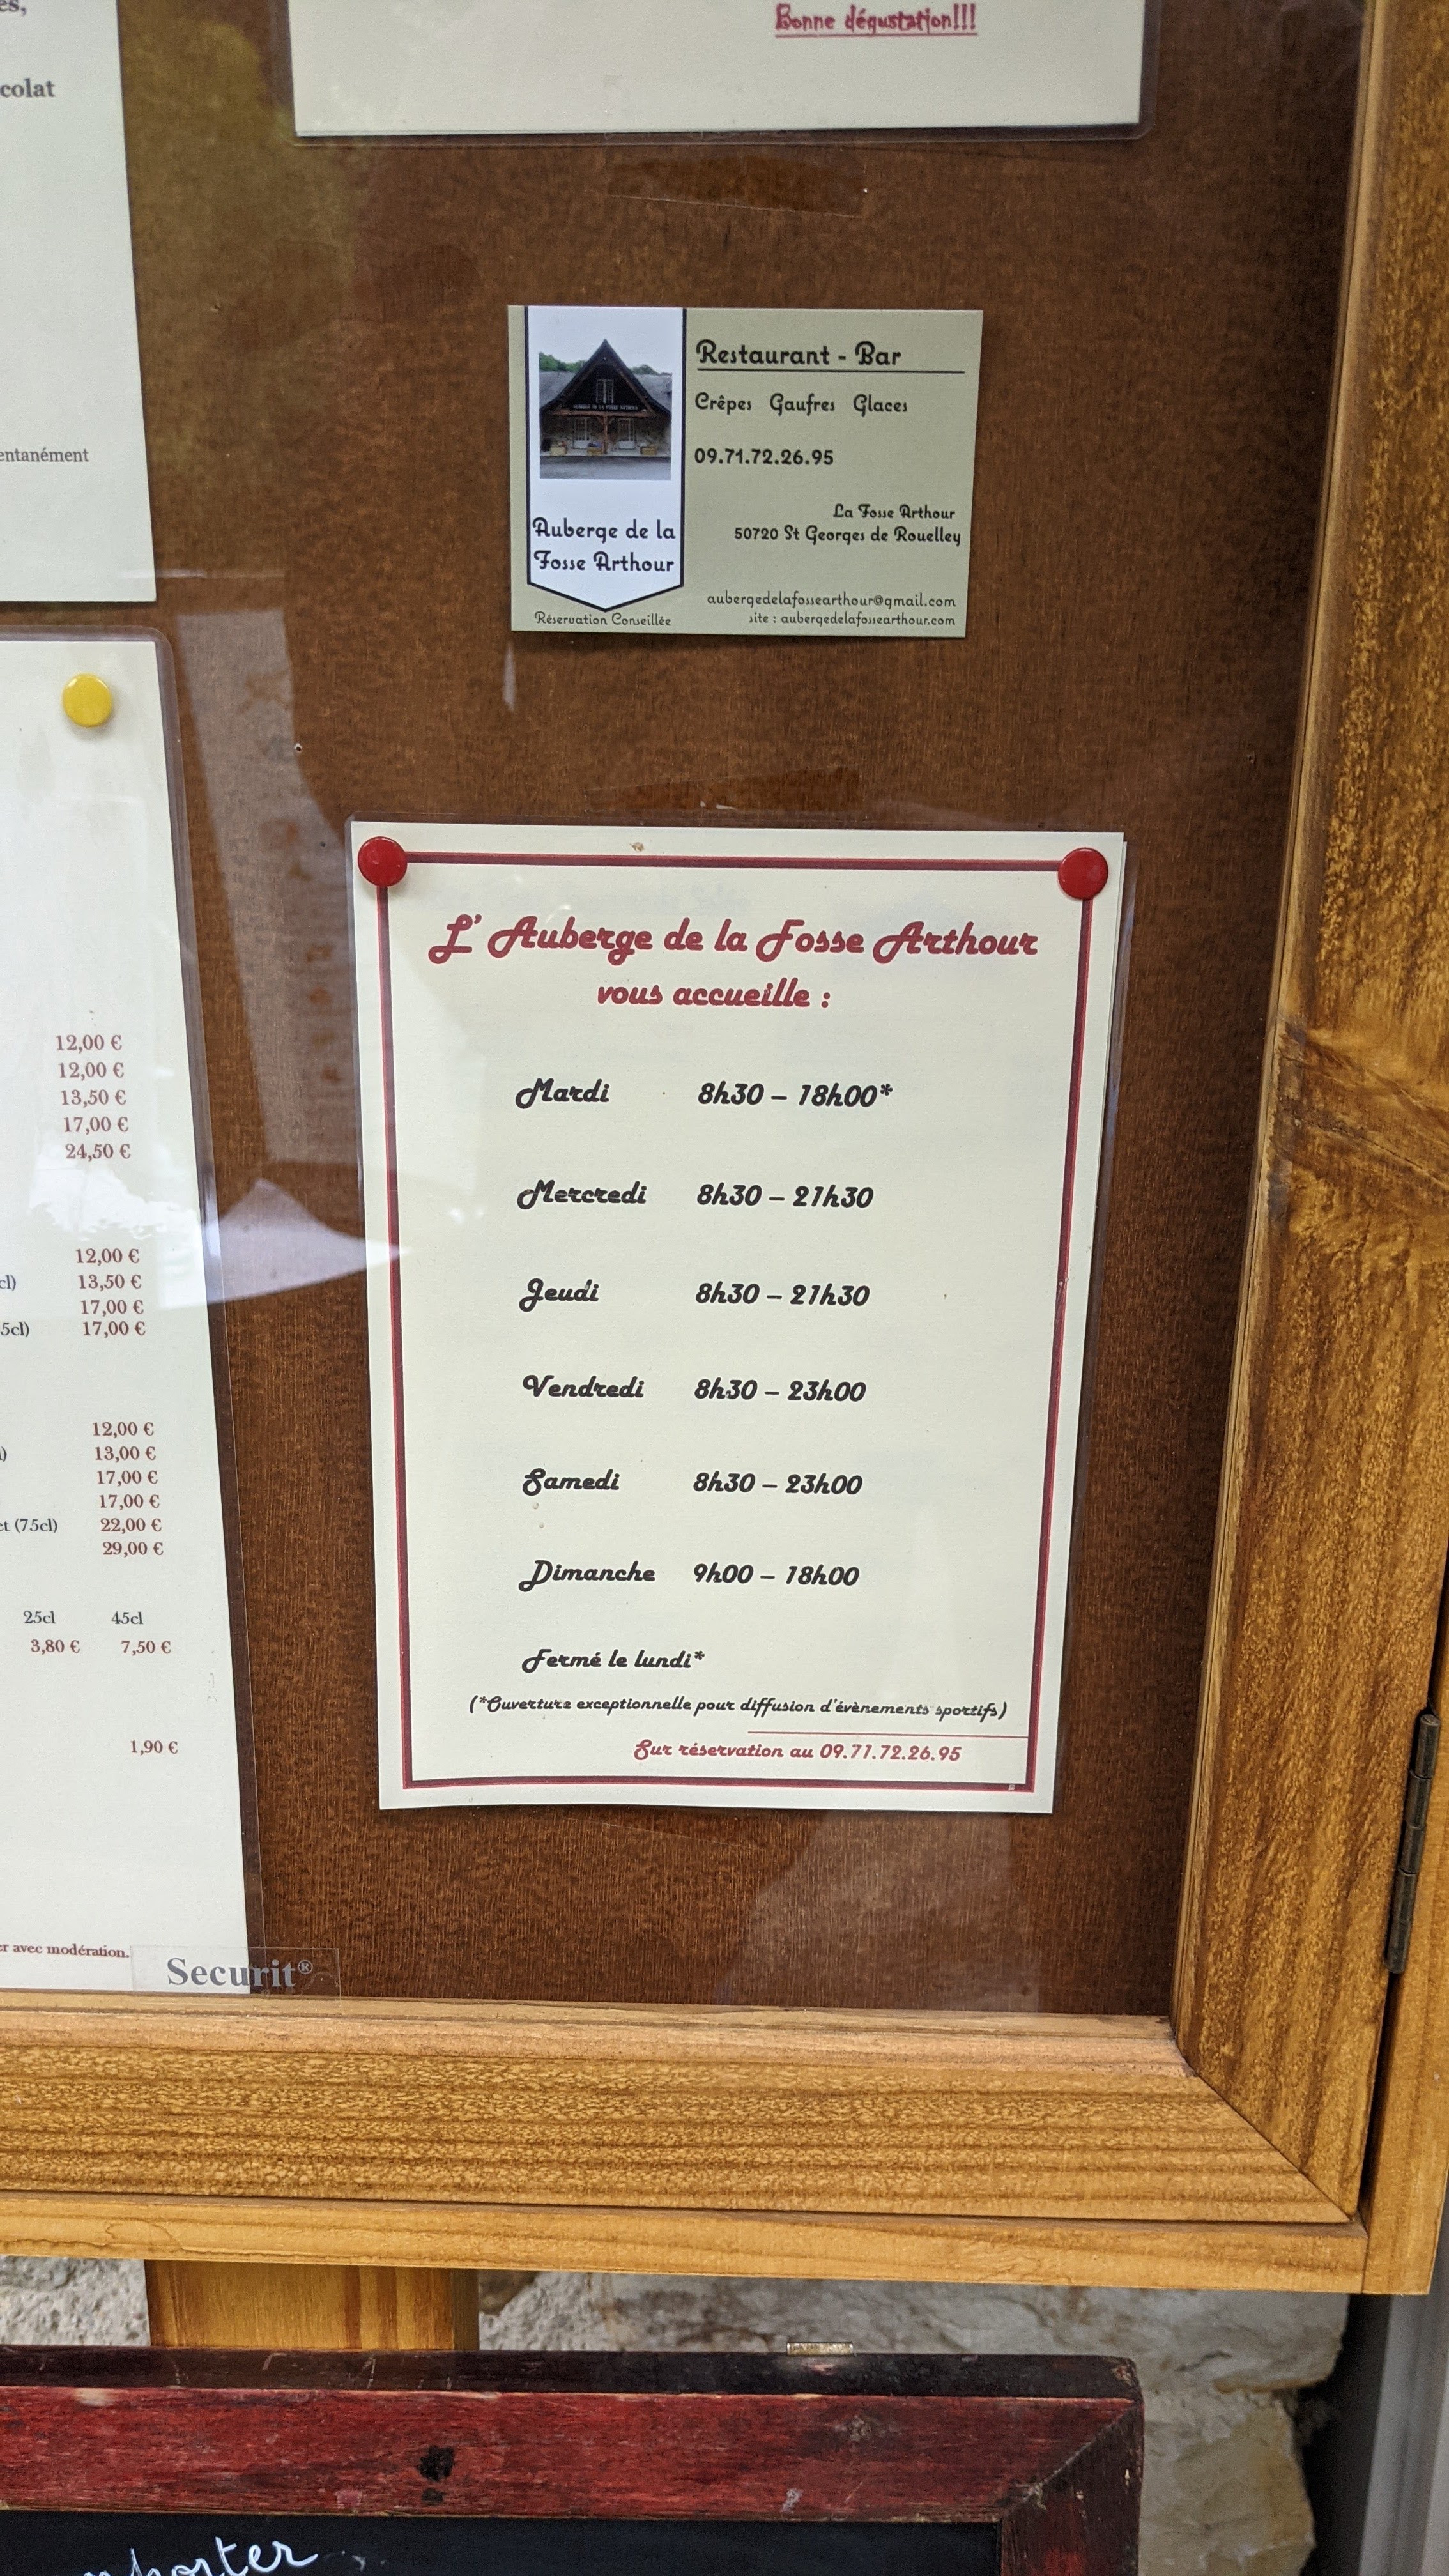 es,
colat
entanément
Bonne dégustation!!!
Restaurant - Bar
Crêpes Gaufres Glaces
09.71.72.26.95
La Fosse Arthour
50720 St Georges de Rouelley
aubergedelafossearthour@gmail.com
site : aubergedelafossearthour.com
Auberge de la
Fosse Arthour
Réservation Conseillée
12,00 €
12,00 €
13,50 €
17,00 €
24,50 €
12,00 €
cl) 13,50 €
17,00 €
5cl) 17,00 €
12,00 €
) 13,00 €
17,00 €
17,00 €
et (75cl) 22,00 €
29,00 €
25cl 45cl
3,80 € 7,50 €
1,90 €
er avec modération.
Securit®
L' Auberge de la Fosse Arthour
vous accueille :
Mardi 8h30 – 18h00*
Mercredi 8h30 – 21h30
Jeudi 8h30 – 21h30
Vendredi 8h30 – 23h00
Samedi 8h30 – 23h00
Dimanche 9h00 – 18h00
Fermé le lundi*
(*Ouverture exceptionnelle pour diffusion d'évènements sportifs)
Sur réservation au 09.71.72.26.95